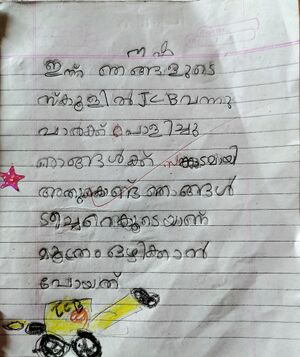 ഇന്ന് ഞങ്ങളുടെ
സ്കൂളിൽ JCB വന്നു
പാർക്ക് പൊളിച്ചു
ഞങ്ങൾക്ക് സങ്കടമായി
അതുകൊണ്ട് ഞങ്ങൾ
ടീച്ചറെകൂടെയാണ്
മൂത്രം ഒഴിക്കാൻ
പോയത്
JCB